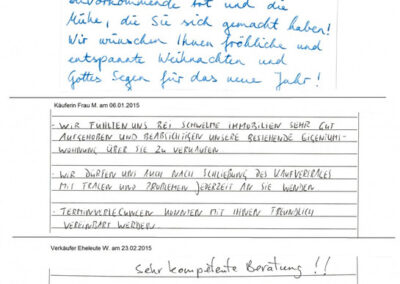 zuvorkommende Art und die
Mühe, die Sie sich gemacht haben!
Wir wünschen Ihnen fröhliche und
entspannte Weihnachten und
Gottes Segen für das neue Jahr!
Käuferin Frau M. am 06.01.2015
- WIR FÜHLTEN UNS BEI SCHWELME IMMOBILIEN SEHR GUT
AUFGEHOBEN UND BEABSICHTIGEN UNSERE BESTEHENDE EIGENTUMS-
WOHNUNG ÜBER SIE ZU VERKAUFEN
- WIR DÜRFEN UNS AUCH NACH SCHLIEßUNG DES KAUFVERTRAGES
MIT FRAGEN UND PROBLEMEN JEDERZEIT AN SIE WENDEN
- TERMINVERLEGUNGEN KONNTEN MIT IHNEN FREUNDLICH
VEREINBART WERDEN.
Verkäufer Eheleute W. am 23.02.2015
Sehr kompetente Beratung !!